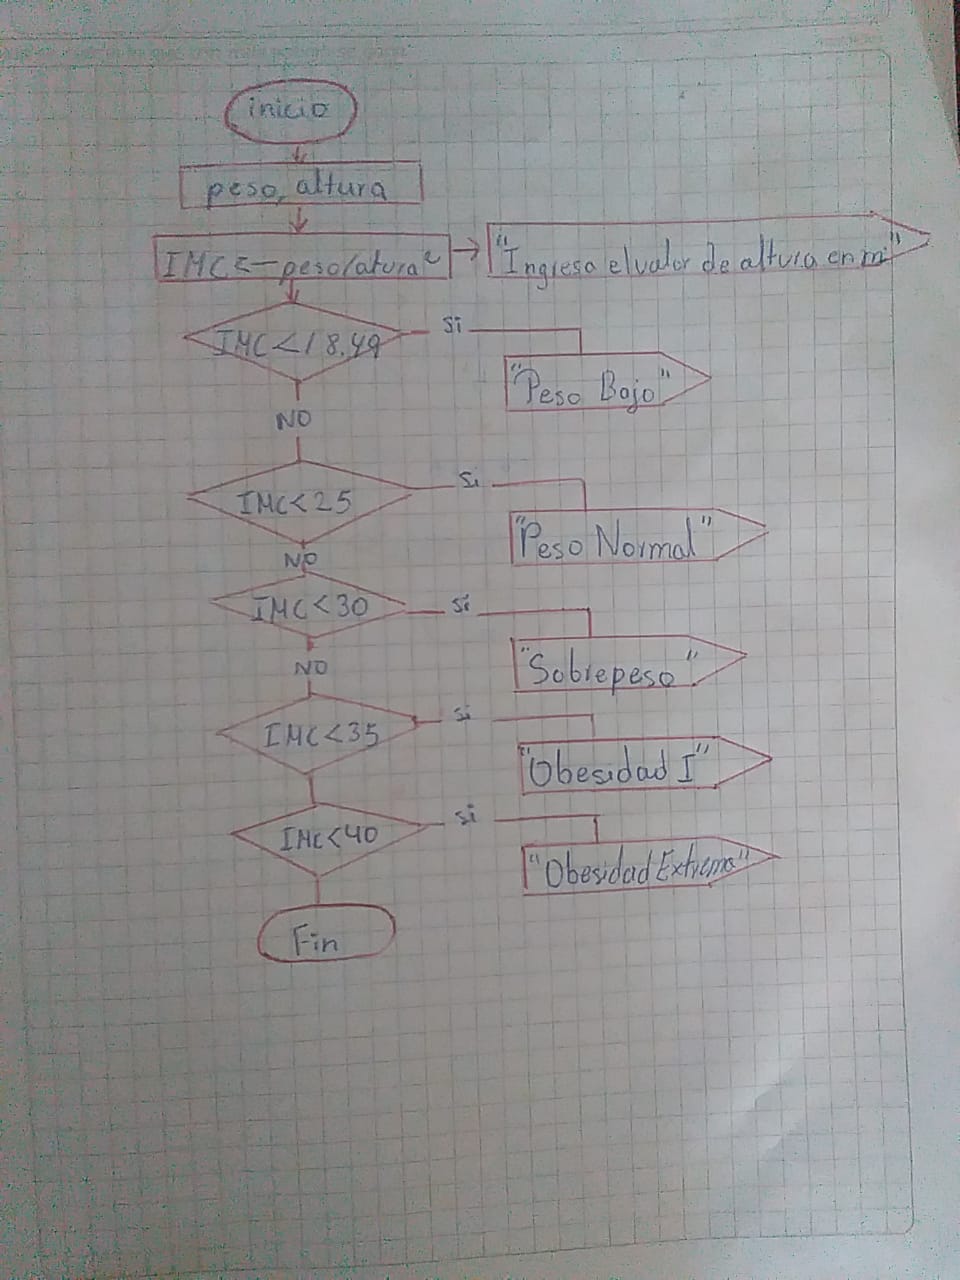 inicio
peso, altura
IMC <- peso/atura²
"Ingrese el valor de altura en m"
IMC<18.49
Si
"Peso Bajo"
NO
IMC<25
Si
"Peso Normal"
NO
IMC<30
Si
"Sobrepeso"
NO
IMC<35
Si
"Obesidad I"
IMC<40
Si
"Obesidad Extrema"
Fin